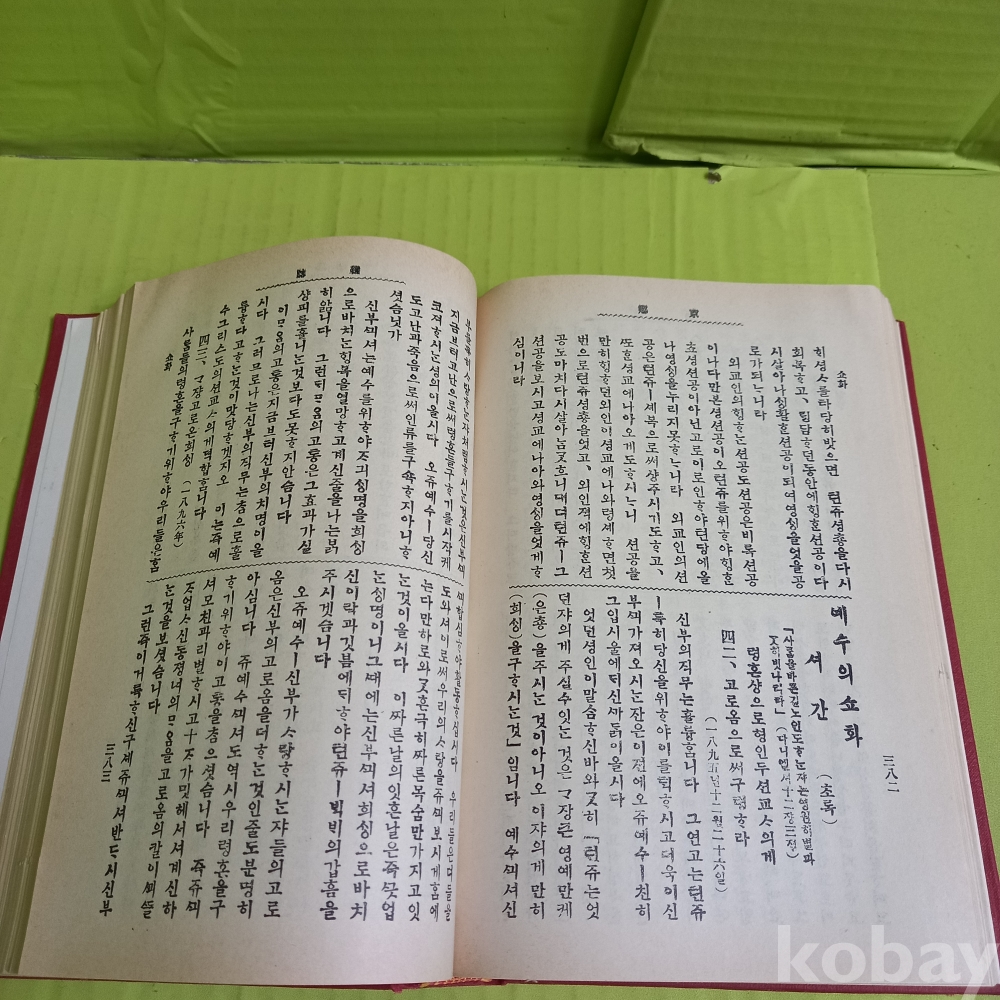 鄕京
쇼화
히셩ᄉᆞ를타당히밧으면 텬쥬셩총을다시
회복ᄒᆞ고, 림답ᄒᆞ던동안에힝ᄒᆞᆫ션공이다
시살아나싱활ᄒᆞᆫ션공이되여영싱을엇을공
로가되ᄂᆞ니라
외교인의힝ᄒᆞᄂᆞᆫ션공도션공은비록션공
이나다만본셩션공이오텬쥬를위ᄒᆞ야힝ᄒᆞᆫ
초셩션공이아닌고로이로인ᄒᆞ야텬당에올
나영싱을누리지못ᄒᆞᄂᆞ니라 외교인의션
공은텬쥬ㅣ셰복으로써샹주시기도ᄒᆞ고,
ᄯᅩᄒᆞᆫ셩교에나아오게도ᄒᆞ시ᄂᆞ니 션공을
만히힝ᄒᆞ던외인이셩교에나와령셰ᄒᆞ면첫
번으로텬쥬셩총을엇고, 외인적에힝ᄒᆞᆫ션
공도마치다시살아남ᄀᆞᆺᄒᆞ니대뎌텬쥬ㅣ그
션공을보시고셩교에나아와영싱을엇게ᄒᆞ
심이니라
三八二
예수의쇼화
셔간 (초록)
「사ᄅᆞᆷ을바른길노인도ᄒᆞᄂᆞᆫ쟈는영원히별과
ᄀᆞᆺ히빗나리라」(다니엘셔十二장三절)
령혼샹으로형인두션교ᄉᆞ의게
四二、고로옴으로써구령ᄒᆞ라
(一八九五년十二월二十六일)
신부의직무는훌륭ᄒᆞᆷ니다 그연고는텬쥬
ㅣ특히당신을위ᄒᆞ야이를틱ᄒᆞ시고더욱이신
부ᄭᅴ가져오시ᄂᆞᆫ잔은이젼에오쥬예수ㅣ친히
그입시울에다신바ᄃᆞᆰ이올시다
엇던셩인이말ᄉᆞᆷᄒᆞ신바와ᄀᆞᆺ히 『텬쥬는엇
던쟈의게주실수잇ᄂᆞᆫ것은ᄀᆞ장큰영예만케
(은총)을주시ᄂᆞᆫ것이아니오이쟈의게만히
(희싱)을구ᄒᆞ시ᄂᆞᆫ것』입니다 예수ᄭᅴ셔신
雜誌
지금브터고난으로써령혼들구ᄒᆞ기를시작케
코져ᄒᆞ시ᄂᆞᆫ셤의이올시다 오쥬예수ㅣ당신
도고난과죽음으로써인류를구쇽ᄒᆞ지아니ᄒᆞ
셧슴닛가
신부ᄭᅴ셔는예수를위ᄒᆞ야ᄌᆞ긔싱명을희싱
으로바치ᄂᆞᆫ힝복을열망ᄒᆞ고계신줄을나는ᄇᆞᆰ
히압니다 그런ᄃᆡᄆᆞᄋᆞᆷ의고통은그효과가실
샹피를흘니ᄂᆞᆫ것보다도못ᄒᆞ지안습니다
이ᄆᆞᄋᆞᆷ의고통은지금브터신부의치명이올
시다 그러므로나는신부의직무는ᄎᆞᆷ으로훌
륭ᄒᆞ다고ᄒᆞᄂᆞᆫ것이맛당ᄒᆞ겟지오 이는쥬예
수그리스도의션교ᄉᆞ의게격합ᄒᆞᆷ니다
四三、ᄀᆞ쟝고로온희싱 (一八九六年)
사ᄅᆞᆷ들의령혼을구ᄒᆞ기위ᄒᆞ야우리들은ᄒᆞᆷ
쇼화
ᄭᅴ합심ᄒᆞ야활동ᄒᆞ십시다
눈싱명이니그ᄯᅢ에는신부ᄭᅴ셔희싱으로바치
신이락과깃븜에ᄃᆡᄒᆞ야텬쥬ㅣ빅빅의갑흠을
주시겟슴니다
오쥬예수ㅣ신부가ᄉᆞ랑ᄒᆞ시ᄂᆞᆫ쟈들의고로
옴은신부의고로옴을더ᄒᆞᄂᆞᆫ것인줄도분명히
아십니다 쥬예수ᄭᅴ셔도역시우리령혼을구
ᄒᆞ기위ᄒᆞ야이고통을ᄎᆞᆷ으셧슴니다 즉쥬ᄭᅴ
셔모친과리별ᄒᆞ시고十ᄌᆞ가밋헤셔셔계신하
ᄌᆞ업ᄉᆞ신동졍녀의ᄆᆞᄋᆞᆷ을고로옴의칼이ᄭᅦᄯᅮᆯ
ᄂᆞᆫ것을보셧슴니다
그런즉이거륵ᄒᆞ신구셰쥬ᄭᅴ셔반ᄃᆞ시신부
三八三
kobay